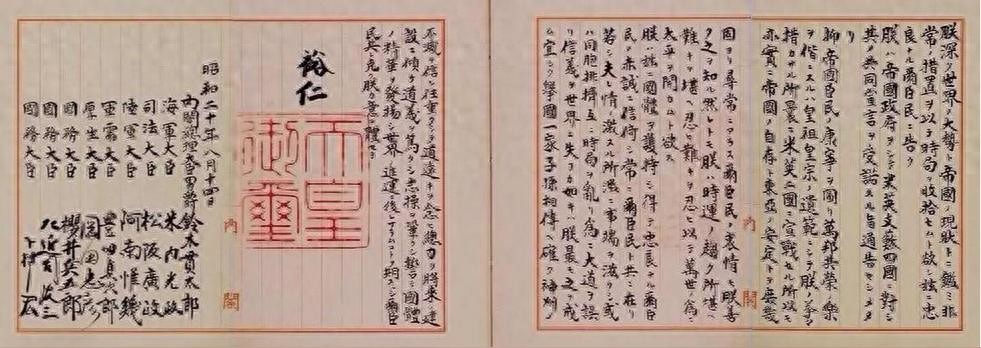 朕深ク世界ノ大勢ト帝國ノ現狀トニ鑑ミ非
常ノ措置ヲ以テ時局ヲ收拾セムト欲シ茲ニ忠
良ナル爾臣民ニ告ク
朕ハ帝國政府ヲシテ米英支蘇四國ニ對シ
其ノ共同宣言ヲ受諾スル旨通告セシメタ
リ
抑帝國臣民ノ康寧ヲ圖リ萬邦共榮ノ樂
ヲ偕ニスルハ皇祖皇宗ノ遺範ニシテ朕ノ拳々
措カサル所曩ニ米英二國ニ宣戰セル所以モ
亦實ニ帝國ノ自存ト東亞ノ安定トヲ庶幾
固ヨリ尋常ニアラス爾臣民ノ衷情モ朕善
ク之ヲ知ル然レトモ朕ハ時運ノ趨ク所堪ヘ
難キヲ堪ヘ忍ヒ難キヲ忍ヒ以テ萬世ノ爲ニ
太平ヲ開カムト欲ス
朕ハ茲ニ國體ヲ護持シ得テ忠良ナル爾臣
民ノ赤誠ニ信倚シ常ニ爾臣民ト共ニ在リ
若シ夫レ情ノ激スル所濫ニ事端ヲ滋クシ或
ハ同胞排擠互ニ時局ヲ亂リ爲ニ大道ヲ誤
リ信義ヲ世界ニ失フカ如キハ朕最モ之ヲ戒
ム宜シク擧國一家子孫相傳ヘ確ク神州ノ
內閣
不滅ヲ信シ任重クシテ道遠キヲ念ヒ總力ヲ將來ノ建
設ニ傾ケ道義ヲ篤クシ志操ヲ鞏クシ誓テ國體
ノ精華ヲ發揚シ世界ノ進運ニ後レサラムコトヲ期スヘシ爾臣
民其レ克ク朕カ意ヲ體セヨ
裕仁
天皇
御璽
昭和二十年八月十四日
內閣總理大臣男爵 鈴木貫太郎
海軍大臣 米內光政
司法大臣 松阪廣政
陸軍大臣 阿南惟幾
軍需大臣 豐田貞次郎
厚生大臣 岡田忠彦
國務大臣 櫻井兵五郎
國務大臣 左近司政三
國務大臣 下村宏
內閣